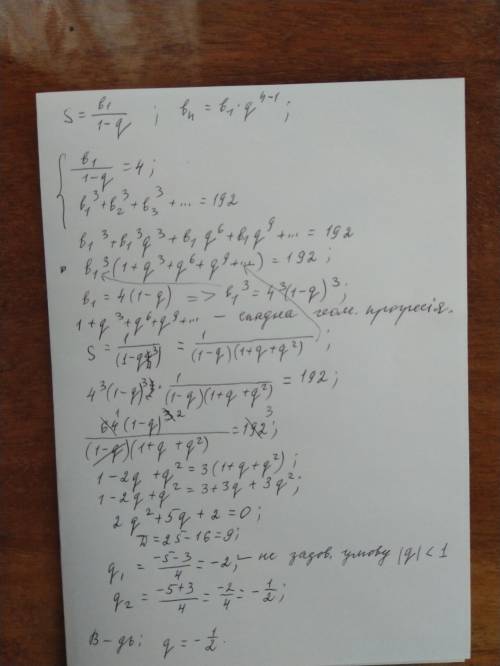 S = b₁/(1-q) ; bₙ = b₁·qⁿ⁻¹;
{ b₁/(1-q) = 4;
b₁³+b₂³+b₃³+... = 192
b₁³+b₁³q³+b₁q⁶+b₁q⁹+... = 192
b₁³(1+q³+q⁶+q⁹+...) = 192;
b₁ = 4(1-q) => b₁³ = 4³(1-q)³;
1+q³+q⁶+q⁹+... – спадна геом. прогресія.
S = 1/(1-q³) = 1/((1-q)(1+q+q²));
4³(1-q)³ · 1/((1-q)(1+q+q²)) = 192;
64(1-q)³/((1-q)(1+q+q²)) = 192; 1 2 3
1-2q+q² = 3(1+q+q²);
1-2q+q² = 3+3q+3q²;
2q²+5q+2 = 0;
D = 25-16 = 9;
q₁ = (-5-3)/4 = -2; – не задов. умову |q| < 1
q₂ = (-5+3)/4 = -2/4 = -1/2;
В-дь: q = -1/2.